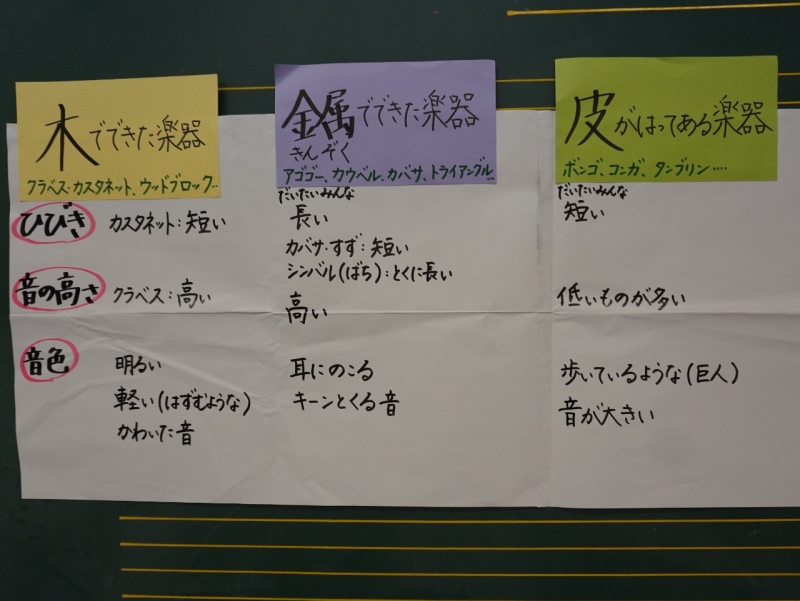 木でできた楽器
クラベス・カスタネット、ウッドブロック…
金属でできた楽器
きんぞく
アゴゴー、カウベル、カバサ、トライアングル…
皮がはってある楽器
ボンゴ、コンガ、タンブリン…‥
ひびき
カスタネット:短い
だいたいみんな
長い
カバサ・すず:短い
シンバル(ばち):とくに長い
だいたいみんな
短い
音の高さ
クラベス:高い
高い
低いものが多い
音色
明るい
軽い(はずむような)
かわいた音
耳にのこる
キーンとくる音
歩いているような(巨人)
音が大きい